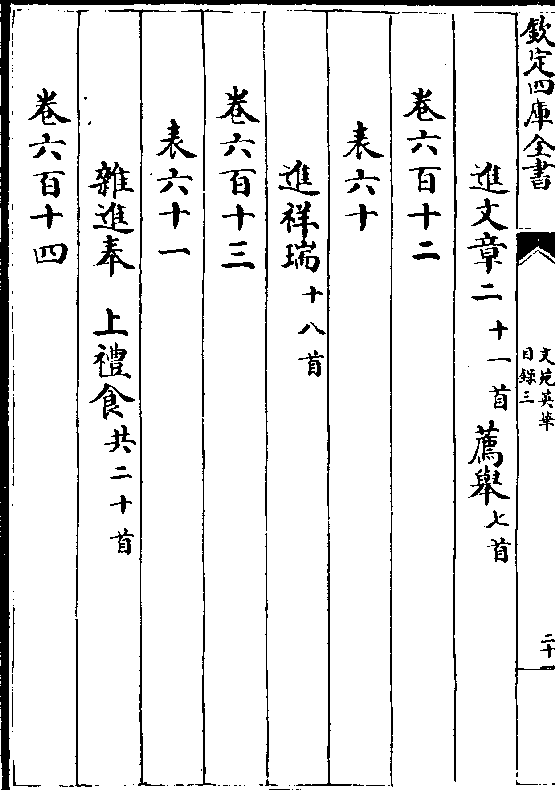 欽定四庫全書
文苑英華
目錄三
二十
進文章二十一首薦舉七首
卷六百十二
表六十
進祥瑞十八首
卷六百十三
表六十一
雜進奉　上禮食共二十首
卷六百十四